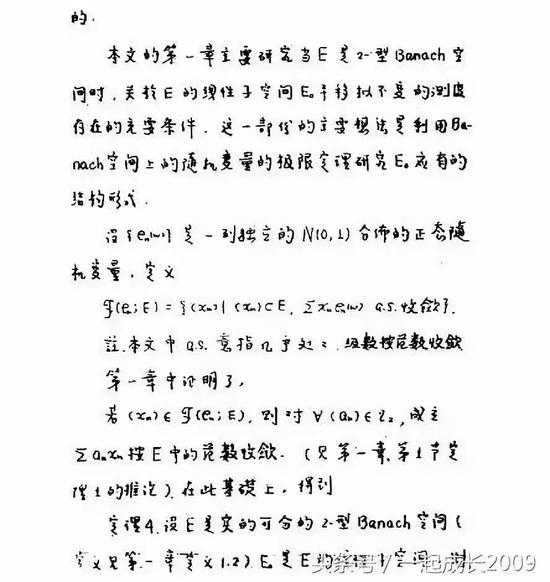 的.
本文的第一章主要研究当E是2-型Banach空
间时,关于E的线性子空间E₀平移拟不变的测度
存在的充要条件.这一部份的主要想法是利用Ba-
nach空间上的随机变量的极限定理研究E₀应有的
结构形式.
设{eₙ(ω)}是一列独立的N(0,1)分佈的正态随
机变量,定义
𝒯(eₙ;E)={(xₙ)|(xₙ)⊂E, Σxₙeₙ(ω) a.s.收敛}.
註.本文中a.s.意指几乎处处.级数按范数收敛
第一章中证明了,
若(xₙ)∈𝒯(eₙ;E),则对∀(aₙ)∈l₂,成立
Σaₙxₙ按E中的范数收敛.(见第一章,第1节定
理1的推论).在此基礎上,得到
定理4.设E是实的可分的2-型Banach空间(
定义见第一章定义1.2)E₀是E的 子空间 则
头条号/一起成长2009